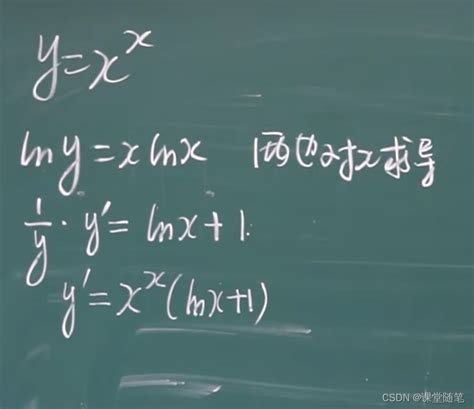 y=x^x
ln y = x ln x 两边对x求导
1/y · y' = ln x + 1.
y' = x^x (ln x + 1)
CSDN @课堂随笔